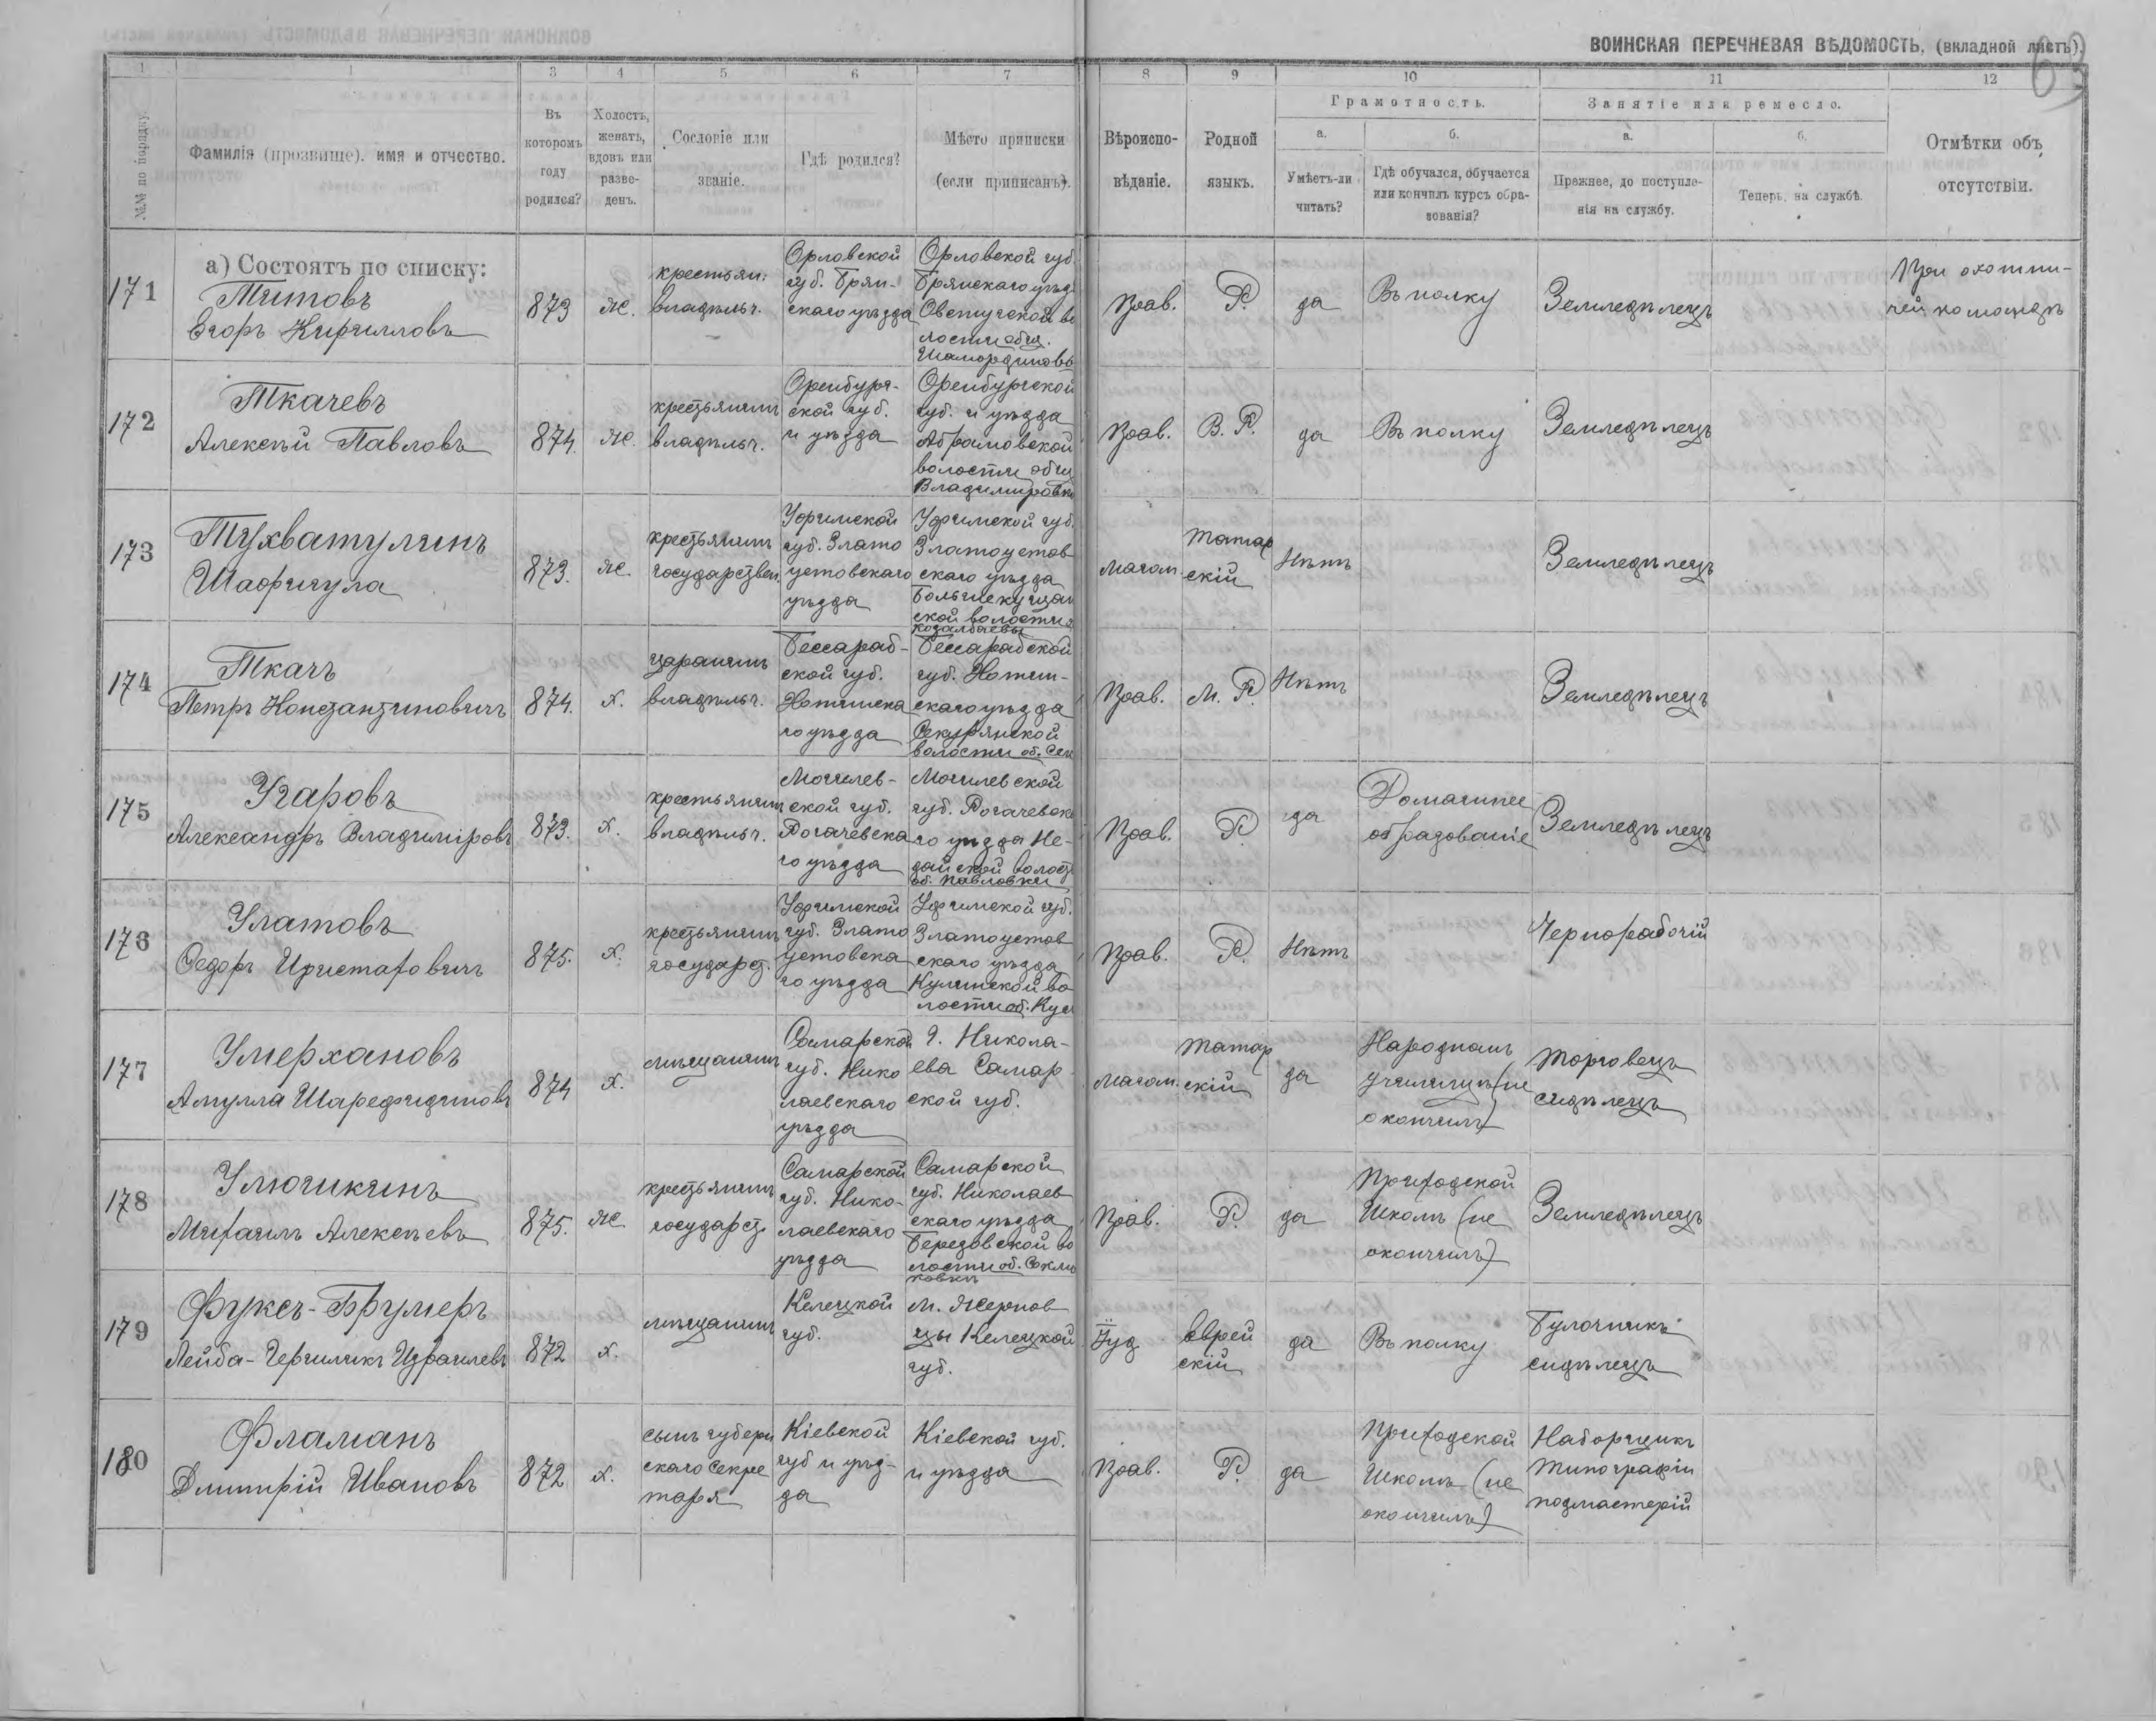 ВОИНСКАЯ ПЕРЕЧНЕВАЯ ВѢДОМОСТЬ, (вкладной листъ).
63
1 1 3 4 5 6 7 8 9 10 11 12
№№ по порядку.
Фамилія (прозвище), имя и отчество.
Въ которомъ году родился?
Холостъ, женатъ, вдовъ или разве-денъ.
Сословіе или званіе.
Гдѣ родился?
Мѣсто приписки (если приписанъ).
Вѣроиспо-вѣданіе.
Родной языкъ.
Грамотность.
а. Умѣетъ-ли читать?
б. Гдѣ обучался, обучается или кончилъ курсъ обра-зованія?
Занятіе или ремесло.
а. Прежнее, до поступле-нія на службу.
б. Теперь, на службѣ.
Отмѣтки объ отсутствіи.
а) Состоятъ по списку:
171
Титовъ
Егоръ Кирилловъ
873
ж.
крестьян.
владѣльч.
Орловской
губ. Брян-
скаго уѣзда
Орловской губ
Брянскаго уѣзд
Овстугской во
лости общ.
Шамординовъ
Прав.
Р.
да
Въ полку
Земледѣлецъ
При охотни-
чей командѣ
172
Ткачевъ
Алексѣй Павловъ
874.
ж.
крестьянинъ
владѣльч.
Оренбург-
ской губ.
и уѣзда
Оренбургской
губ. и уѣзда
Абрамовской
волости общ
Владимировки
Прав.
В. Р.
да
Въ полку
Земледѣлецъ
173
Тухватулинъ
Шафигула
873.
ж.
крестьянинъ
государствен.
Уфимской
губ. Злато
устовскаго
уѣзда
Уфимской губ.
Златоустов
скаго уѣзда
ской волости
магом.
татар
скій
Нѣтъ
Земледѣлецъ
174
Ткачъ
Петръ Константиновичъ
874.
х.
царанинъ
владѣльч.
Бессараб-
ской губ.
Хотинска
го уѣзда
Бессарабской
губ. Хотин-
скаго уѣзда
Секурянской
волости об. Сек
Прав.
М. Р.
Нѣтъ
Земледѣлецъ
175
Угаровъ
Александръ Владиміровъ
873.
х.
крестьянинъ
владѣльч.
Могилев-
ской губ.
Рогачевска
го уѣзда
Могилевской
губ. Рогачевска
го уѣзда Не-
дайской волост
об. Павловки
Прав.
Р.
да
Домашнее
образованіе
Земледѣлецъ
176
Улатовъ
Федоръ
875.
х.
крестьянинъ
государст.
Уфимской
губ. Злато
устовска
го уѣзда
Уфимской губ.
Златоустов
скаго уѣзда
Кусинской во
лости об. Куси
Прав.
Р.
Нѣтъ
Чернорабочій
177
Умерхановъ
Амулла Шарефидиновъ
874
х.
мѣщанинъ
Самарской
губ. Нико
лаевскаго
уѣзда
г. Никола-
ева Самар
ской губ.
магом.
татар
скій
да
Народномъ
училищѣ (не
окончилъ)
Торговецъ
сидѣлецъ
178
Улюшкинъ
Михаилъ Алексѣевъ
875.
ж.
крестьянинъ
государст.
Самарской
губ. Нико-
лаевскаго
уѣзда
Самарской
губ. Николаев
скаго уѣзда
Березовской во
лости об.
Прав.
Р.
да
Приходской
Школѣ (не
окончилъ)
Земледѣлецъ
179
Фуксъ-Брумеръ
Лейба- Израилевъ
872
х.
мѣщанинъ
Келецкой
губ.
м. Жернов
цы Келецкой
губ.
Іуд
еврей
скій
да
Въ полку
Булочникъ
сидѣлецъ
180
Фламанъ
Дмитрій Ивановъ
872
х.
сынъ губерн
скаго секре
таря
Кіевской
губ и уѣз-
да
Кіевской губ.
и уѣзда
Прав.
Р.
да
Приходской
Школѣ (не
окончилъ)
Наборщикъ
типографіи
подмастерій